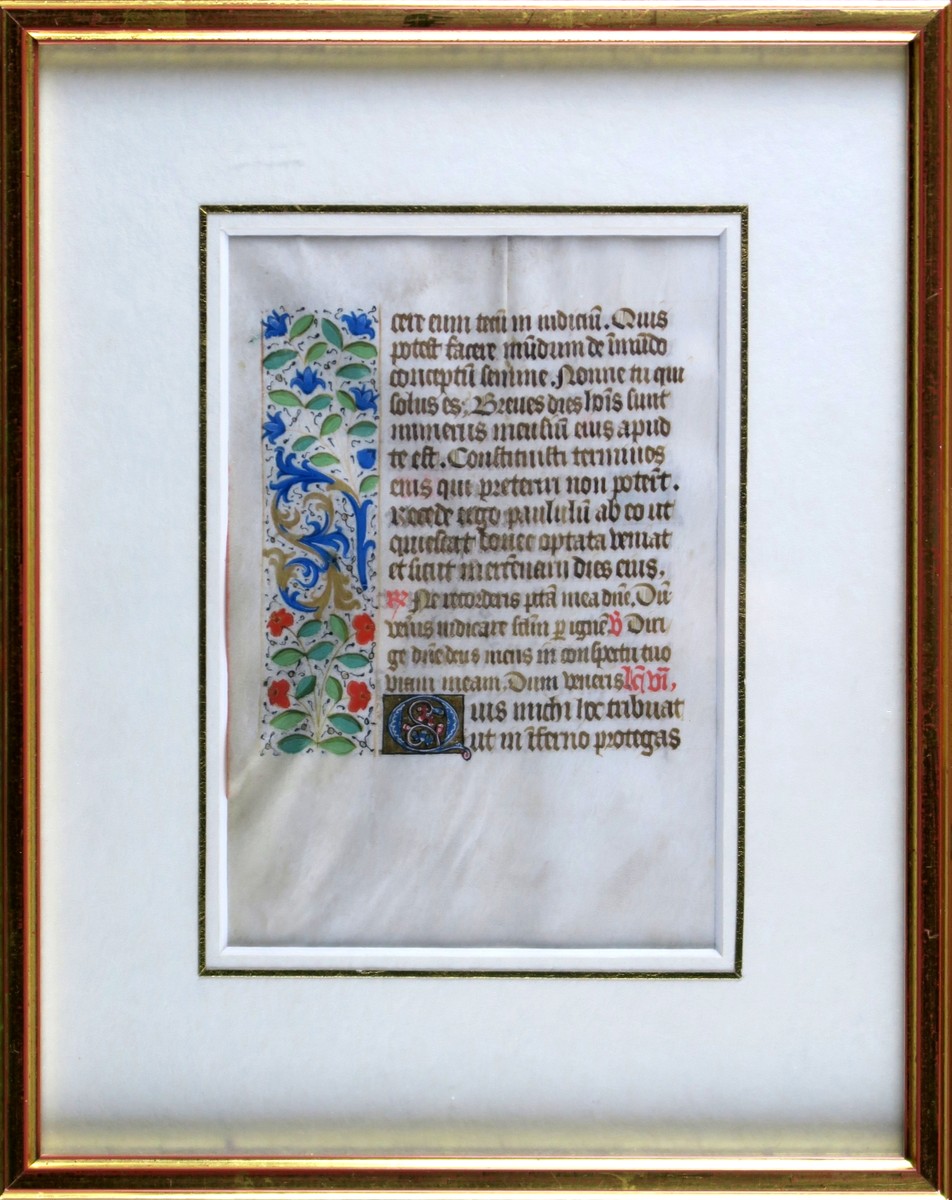 cere eum tecū in iudiciū. Quis
potest facere mūdum de īmūdo
conceptū semine. Nonne tu qui
solus es; Breues dies hoīs sunt
numerus mensiū eius apud
te est. Constituisti terminos
eius qui preteriri non potert.
Recede ergo paululū ab eo ut
quiescat donec optata veniat
et sicut mercenarii dies eius.
℞ Ne recorderis pctā mea dne. Dū
veneris iudicare sclm p ignē ℣ Diri
ge dne deus meus in conspectu tuo
viam meam. Dum veneris lcō vi.
Quis michi hoc tribuat
ut in īferno protegas